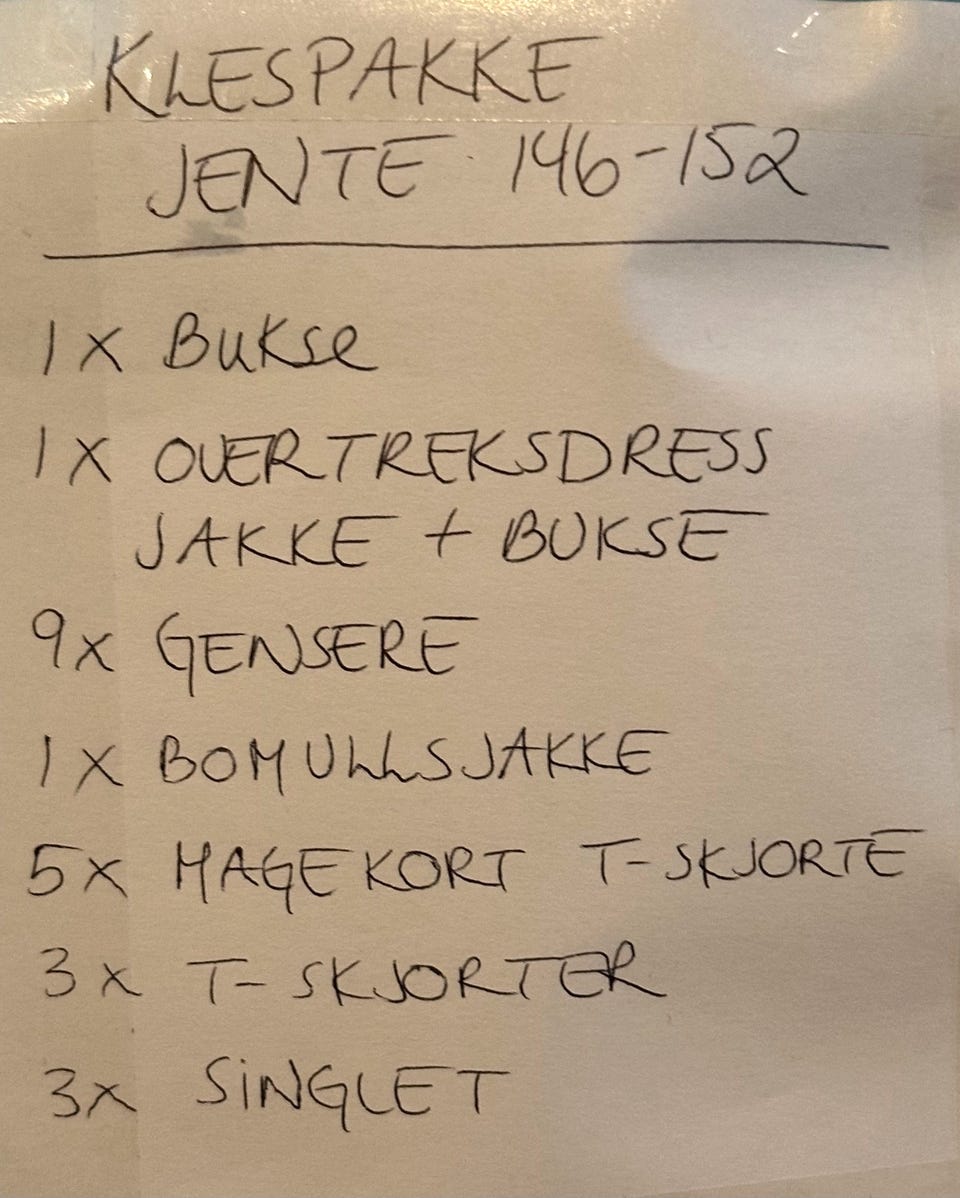 KLESPAKKE
JENTE 146-152
1 x Bukse
1 x OVERTREKSDRESS
JAKKE + BUKSE
9x GENSERE
1 x BOMULLSJAKKE
5x MAGEKORT T-SKJORTE
3x T-SKJORTER
3x SiNGLET